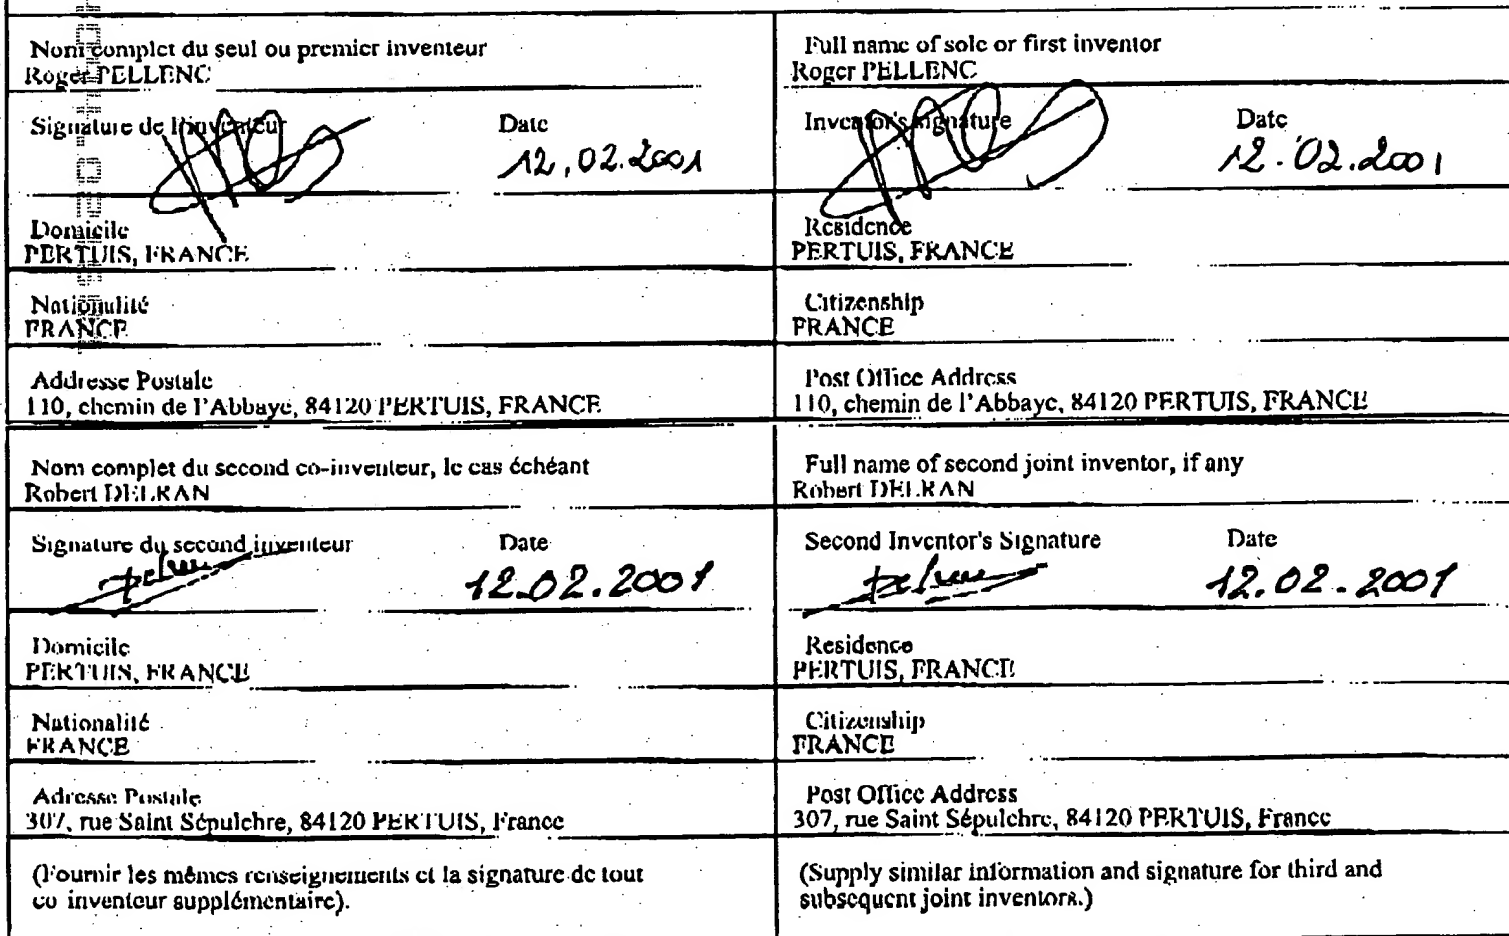 Nom complet du seul ou premier inventeur
Roger PELLENC
Signature de l'inventeur
Date
12.02.2001
Domicile
PERTUIS, FRANCE
Nationalité
FRANCE
Addresse Postale
110, chemin de l'Abbaye, 84120 PERTUIS, FRANCE
Nom complet du second co-inventeur, le cas échéant
Robert DELRAN
Signature du second inventeur
Date
12.02.2001
Domicile
PERTUIS, FRANCE
Nationalité
FRANCE
Adresse Postale
307, rue Saint Sépulchre, 84120 PERTUIS, France
(Fournir les mêmes renseignements et la signature de tout
co inventeur supplémentaire).
Full name of sole or first inventor
Roger PELLENC
Inventor's signature
Date
12.02.2001
Residence
PERTUIS, FRANCE
Citizenship
FRANCE
Post Office Address
110, chemin de l'Abbaye, 84120 PERTUIS, FRANCE
Full name of second joint inventor, if any
Robert DELRAN
Second Inventor's Signature
Date
12.02.2001
Residence
PERTUIS, FRANCE
Citizenship
FRANCE
Post Office Address
307, rue Saint Sépulchre, 84120 PERTUIS, France
(Supply similar information and signature for third and
subsequent joint inventors.)